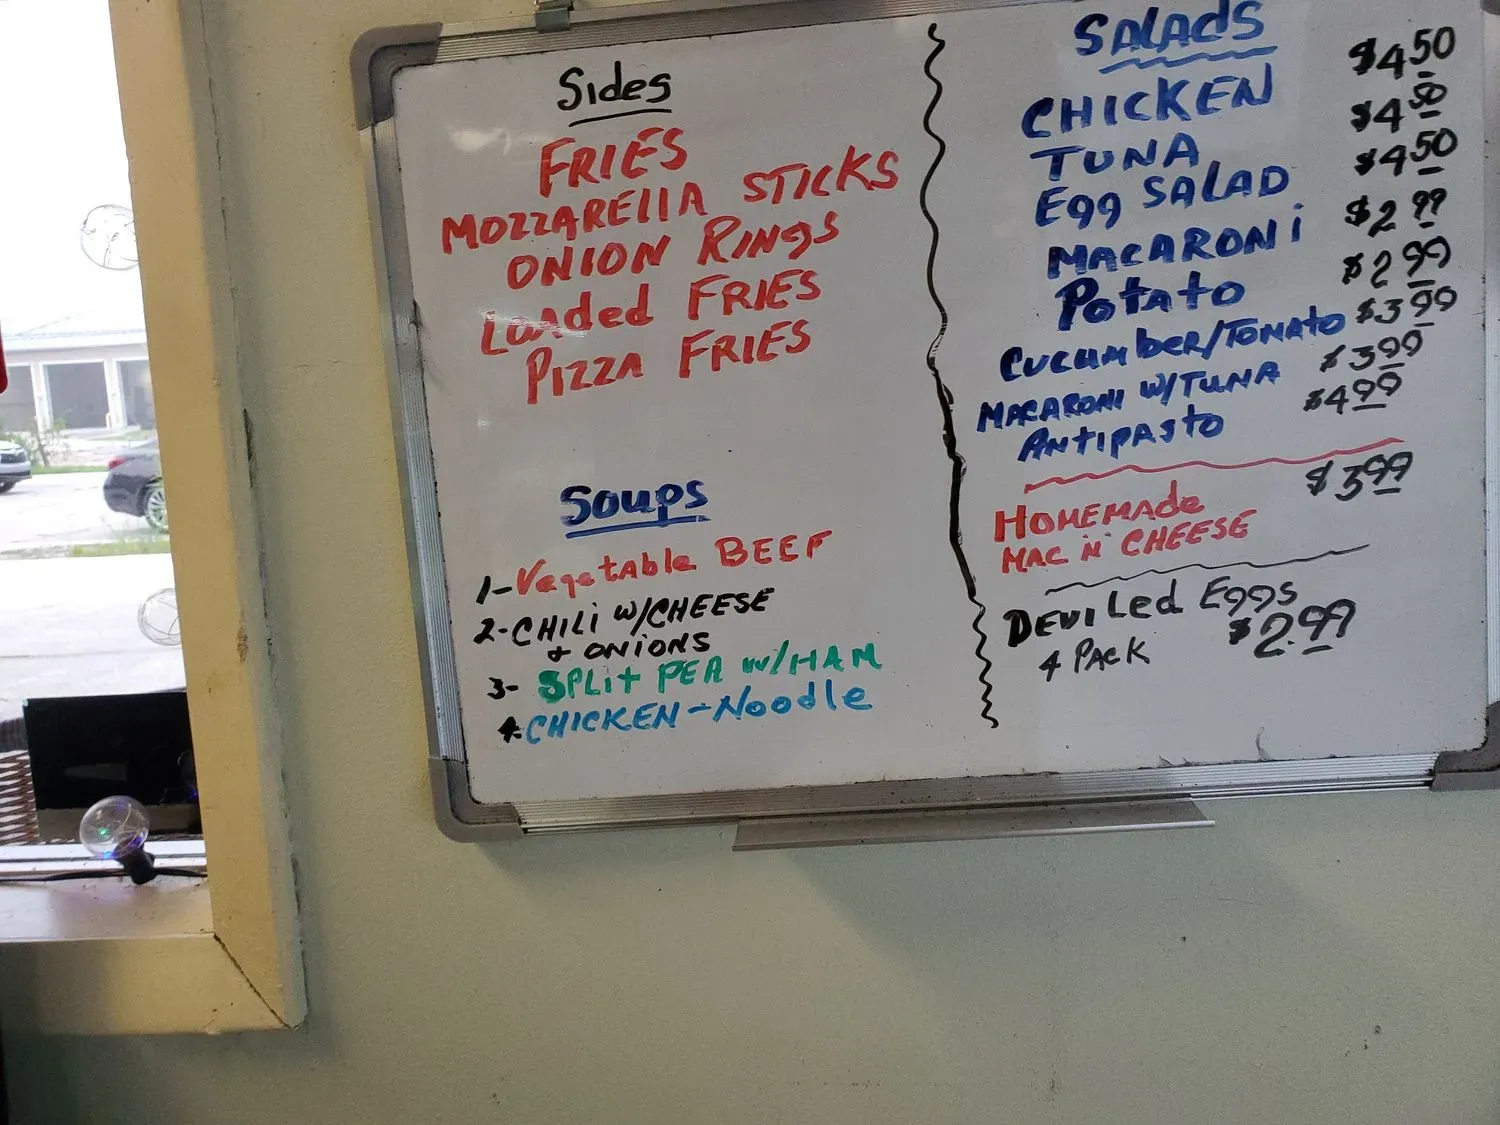 Sides
FRIES
MOZZARELLA STICKS
ONION RINgS
Loaded FRIES
PIZZA FRIES
Soups
1-Vegetable BEEF
2-CHILi W/CHEESE
+ ONIONS
3- SPLit PEA W/HAM
4-CHICKEN-Noodle
SALAdS
CHICKEN $4.50
TUNA $4.50
Egg SALAD $4.50
MACARONi $2.99
Potato $2.99
CUCUMbER/TOMATO $3.99
MACARONI W/TUNA $3.99
ANTIPASTO $4.99
HOMEMAde $3.99
MAC N' CHEESE
DEViLed Eggs
4 PACK $2.99